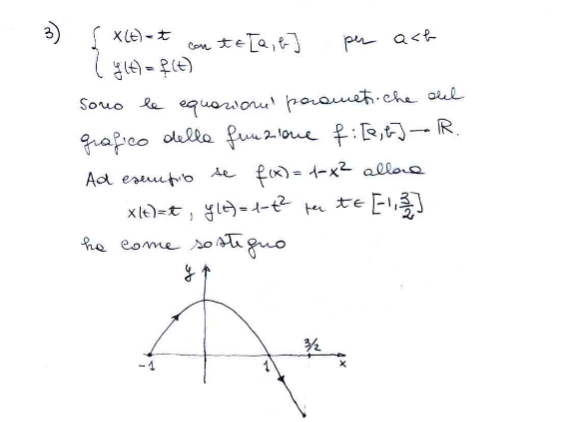 3) { x(t)=t con t∈[a,b] per a<b
y(t)=f(t)
sono le equazioni parametriche del
grafico della funzione f:[a,b]→ℝ.
Ad esempio se f(x)=1-x² allora
x(t)=t, y(t)=1-t² per t∈[-1,3/2]
ha come sostegno
y
3/2
-1 1 x